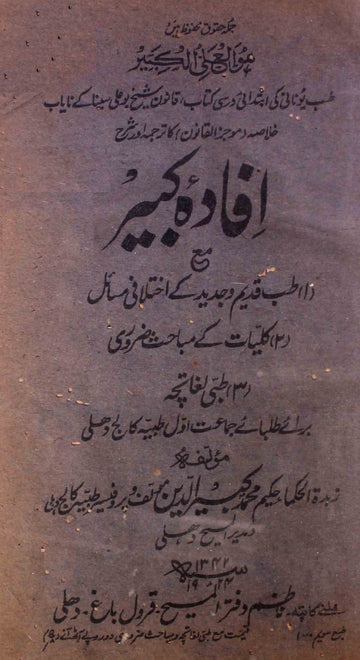 جملہ حقوق محفوظ ہیں
ھو العلی الکبیر
طب یونانی کی ابتدائی درسی کتاب، قانون شیخ بو علی سینا کے نایاب
خلاصہ (موجز القانون) کا ترجمہ اور شرح
افادۂ کبیر
مع
(۱) طب قدیم و جدید کے اختلافی مسائل
(۲) کلیات کے مباحث ضروری
(۳) طبی لغاتچہ
برائے طلبائے جماعت اول طبیہ کالج دھلی
مؤلفہ
زبدۃ الحکما حکیم محمد کبیر الدین مؤلف و پروفیسر طبیہ کالج دہلی
مدیر المسیح دھلی
سنہ ۱۳۴۲ھ
۱۹۲۴
ملنے کا پتہ۔ ناظم دفتر المسیح۔ قرول باغ۔ دھلی
طبع سوم ۱۰۰۰ قیمت مع طبی لغاتچہ و مباحث ضروری دو روپے آٹھ آنے